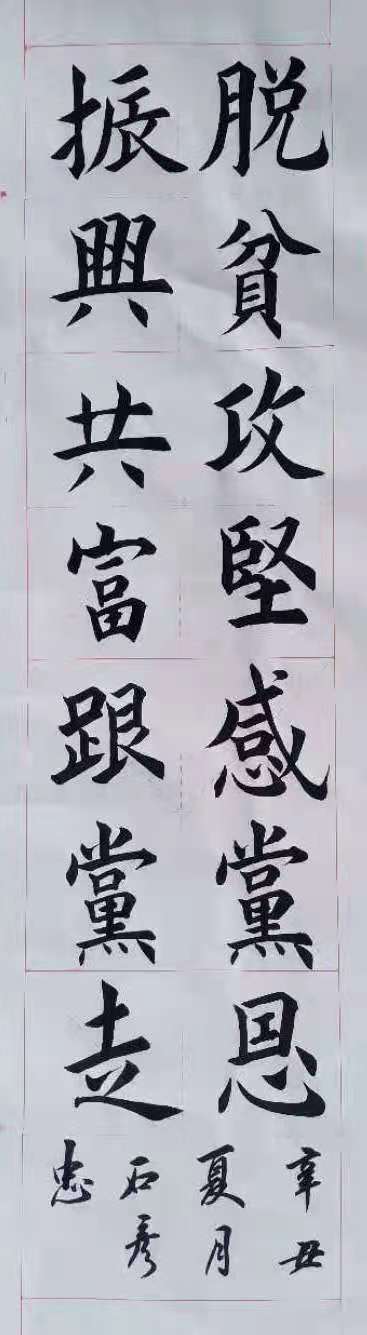 脱貧攻堅感黨恩
振興共富跟黨走
辛丑
夏月
石彥
忠